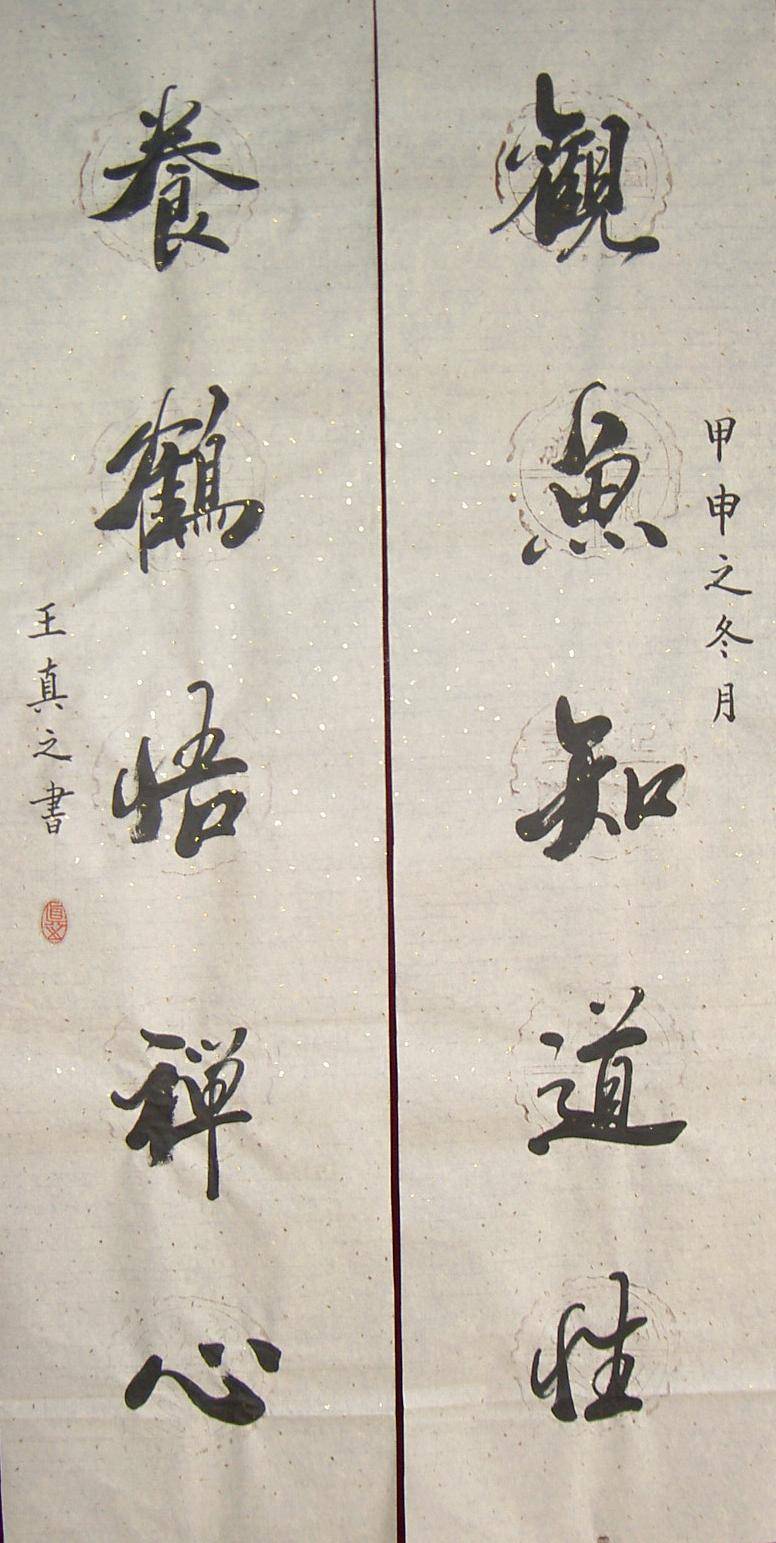 甲申之冬月
觀魚知道性
養鶴悟禪心
王真之書